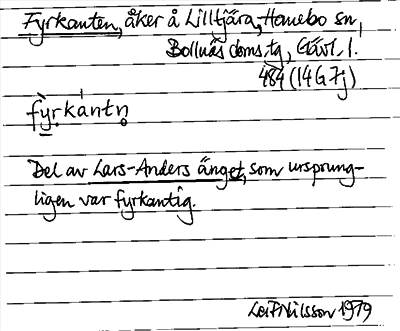 Fyrkanten, åker å Lilltjära, Hanebo sn,
Bollnäs doms.tg, Gävl. l.
484 (14G7j)
fy̠̌rkántn̥
Del av Lars-Anders änget, som ursprung-
ligen var fyrkantig.
Leif Nilsson 1979